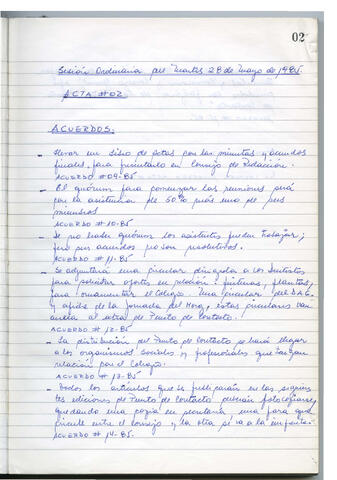 02
Sesión Ordinaria del Martes 28 de Mayo de 1985.
ACTA #02
ACUERDOS:
- Llevar un libro de actas con las minutas y acuerdos
finales, para presentarlo en Consejo de Redacción.
ACUERDO #09-85
- El quórum para comenzar las reuniones será
con la asistencia de 50% más uno de sus
miembros
ACUERDO # 10-85
- Si no hubier quórum los asistentes pueden trabajar,
pero sus acuerdos no son resolutivos.
ACUERDO # 11-85
- Se adjuntará una circular dirigida a los
para solicitar aportes en relación: pinturas, plantas,
para ornamentar el Colegio. Una circular del
y ayuda de la Jornada del Hong, estas circulares van
al de Punto de Contacto.
ACUERDO # 12-85
- La distribución del Punto de Contacto se hará llegar
a los organismos sociales y profesionales que tengan
relación con el Colegio.
ACUERDO # 13-85
- Todos los artículos que se publicarán en las siguien
tes ediciones de Punto de Contacto deberán fotocopiarse,
quedando una copia en secretaría una para que
circule entre el consejo y la otra se va a la imprenta.
ACUERDO # 14-85.